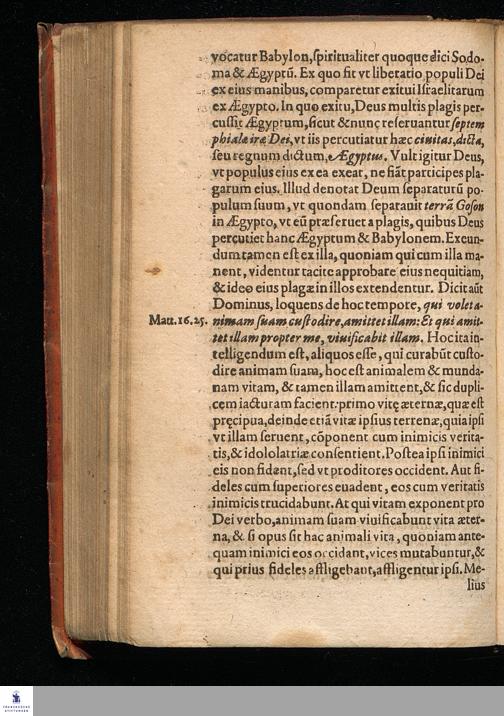 vocatur Babylon, spiritualiter quoque dici Sodo-
ma & Ægyptũ. Ex quo fit vt liberatio populi Dei
ex eius manibus, comparetur exitui Israelitarum
ex Ægypto. In quo exitu, Deus multis plagis per-
cussit Ægyptum, sicut & nunc reseruantur septem
phialæ iræ Dei, vt iis percutiatur hæc ciuitas, dicta,
seu regnum dictum, Ægyptus. Vult igitur Deus,
vt populus eius ex ea exeat, ne fiãt participes pla-
garum eius. Illud denotat Deum separaturũ po-
pulum suum, vt quondam separauit terrã Goson
in Ægypto, vt eũ præseruet a plagis, quibus Deus
percutiet hanc Ægyptum & Babylonem. Exeun-
dum tamen est ex illa, quoniam qui cum illa ma-
nent, videntur tacite approbare eius nequitiam,
& ideo eius plagæ in illos extendentur. Dicit aũt
Dominus, loquens de hoc tempore, qui volet a-
Matt. 16. 25. nimam suam custodire, amittet illam: Et qui amit-
tet illam propter me, viuificabit illam. Hoc ita in-
telligendum est, aliquos esse, qui curabũt custo-
dire animam suam, hoc est animalem & munda-
nam vitam, & tamen illam amittent, & sic dupli-
cem iacturam facient: primo vitę æternæ, quæ est
pręcipua, deinde etiã vitæ ipsius terrenæ, quia ipsi
vt illam seruent, cõponent cum inimicis verita-
tis, & idololatriæ consentient. Postea ipsi inimici
eis non fident, sed vt proditores occident. Aut fi-
deles cum superiores euadent, eos cum veritatis
inimicis trucidabunt. At qui vitam exponent pro
Dei verbo, animam suam viuificabunt vita æter-
na, & si opus sit hac animali vita, quoniam ante-
quam inimici eos occidant, vices mutabuntur, &
qui prius fideles affligebant, affligentur ipsi. Me-
lius
FRANCKESCHE
STIFTUNGEN